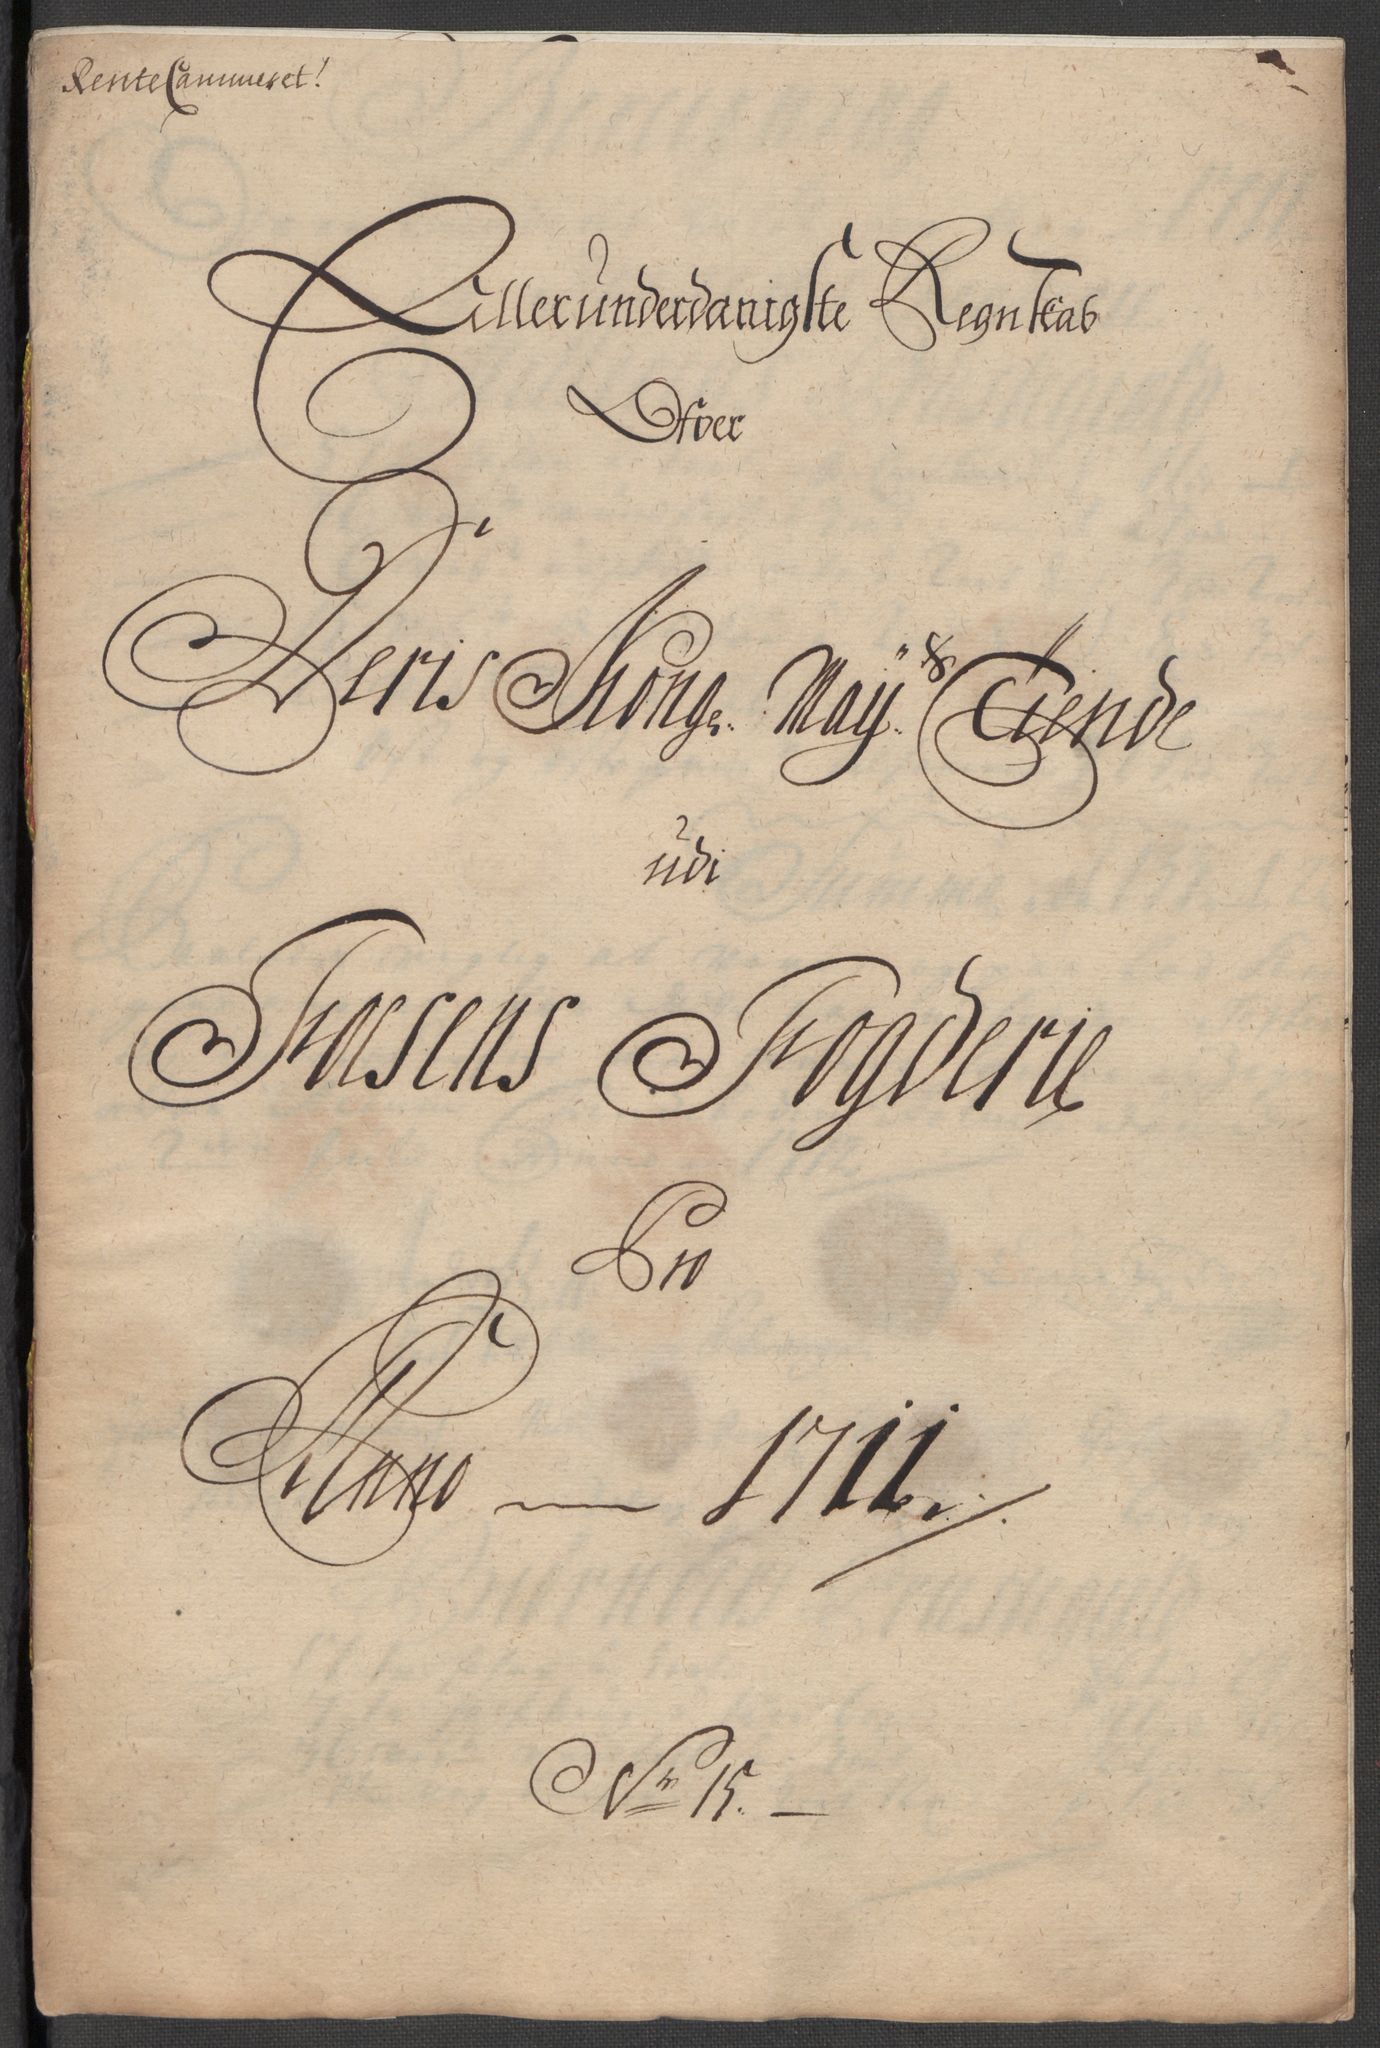 Rente Cammeret!
Allerunderdanigste Regnskab
Ofver
Deris Kong. May.ts Tiende
udi
Fosens Fogderie
Pro
Anno 1711.
No 15.